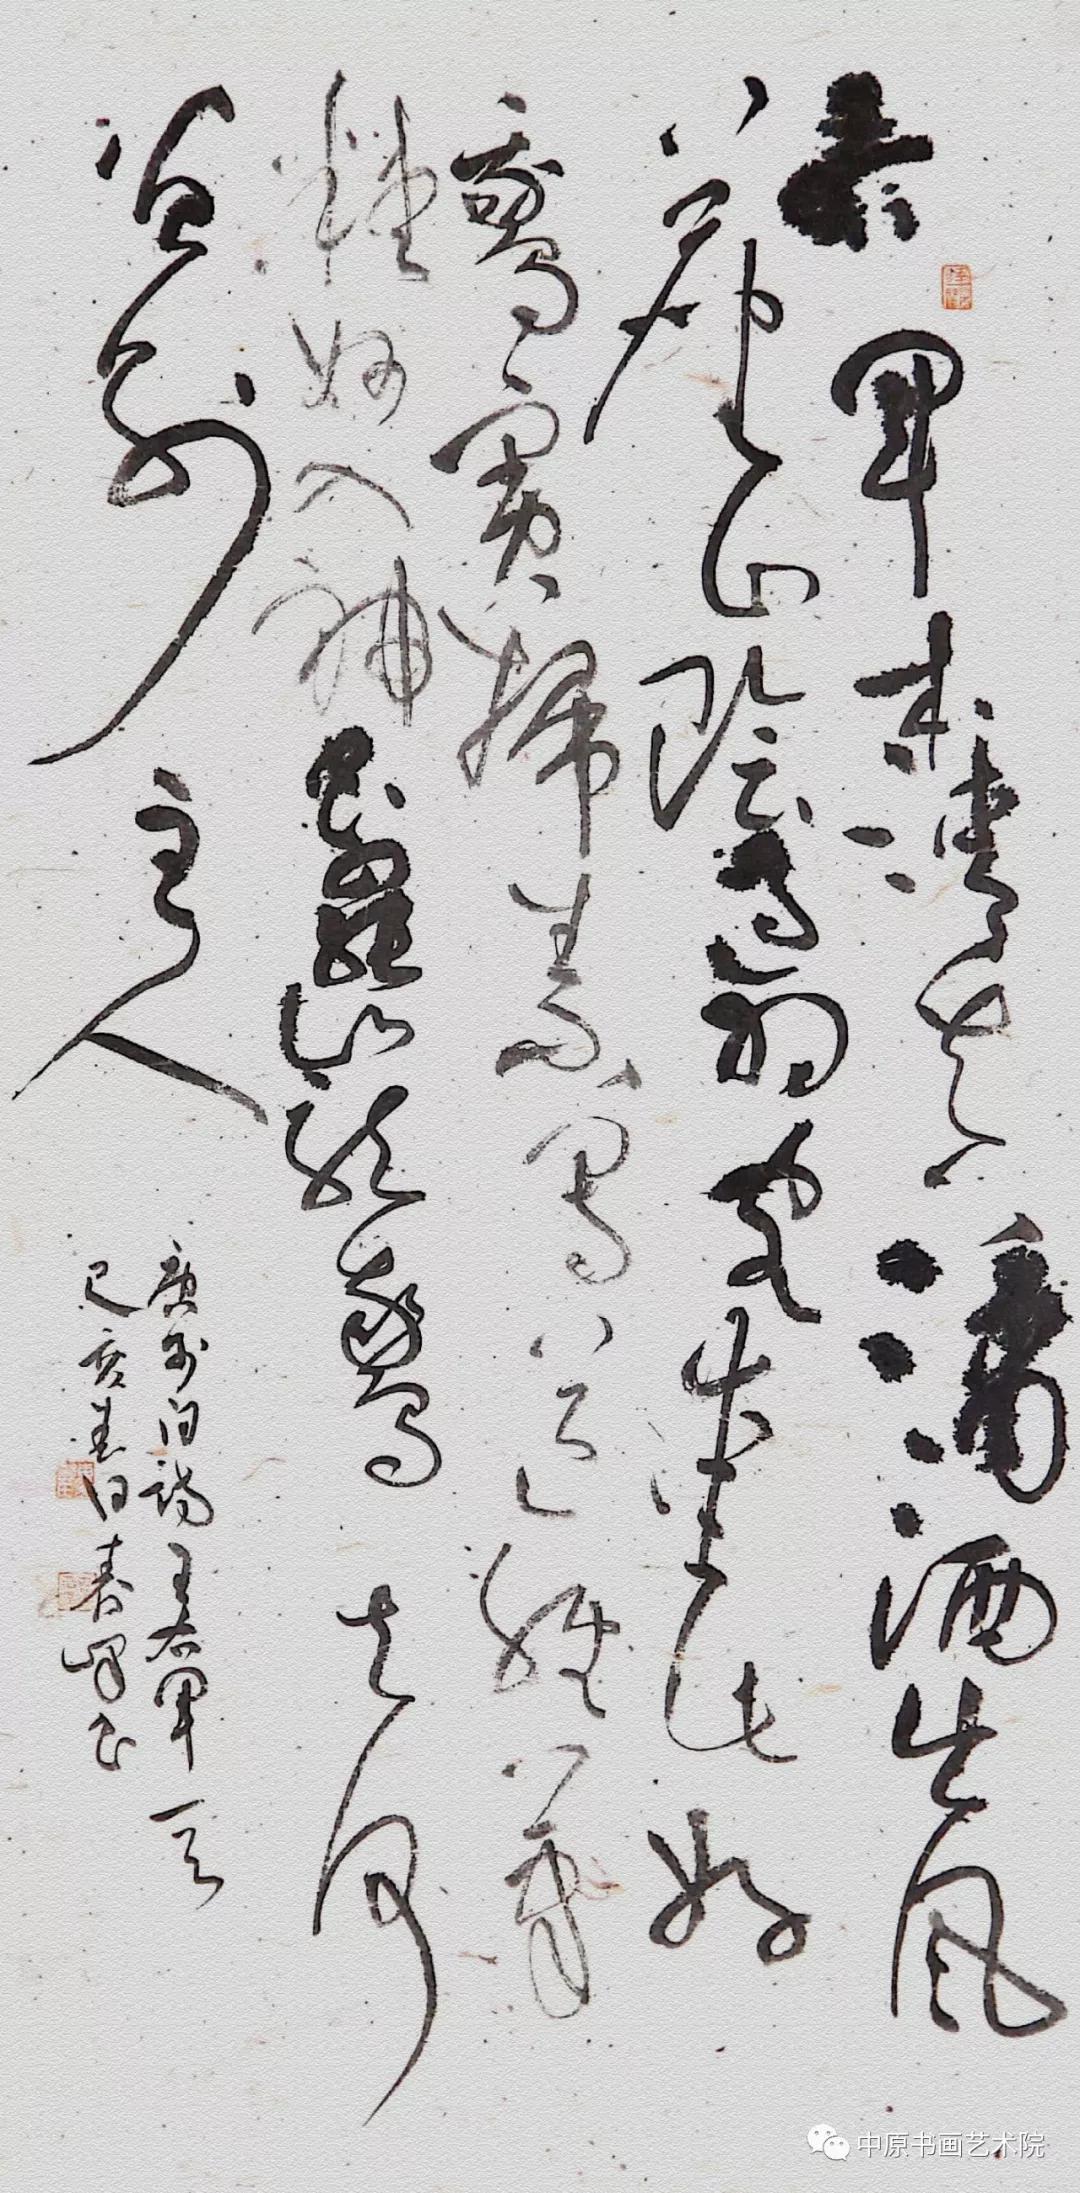 右軍本清真瀟洒出風
塵山陰遇羽客愛此好
鵝賓掃素寫道經筆
精妙入神書罷籠鵝去何
曾別主人
唐李白詩王右軍一首
己亥春日春峰书
中原书画艺术院